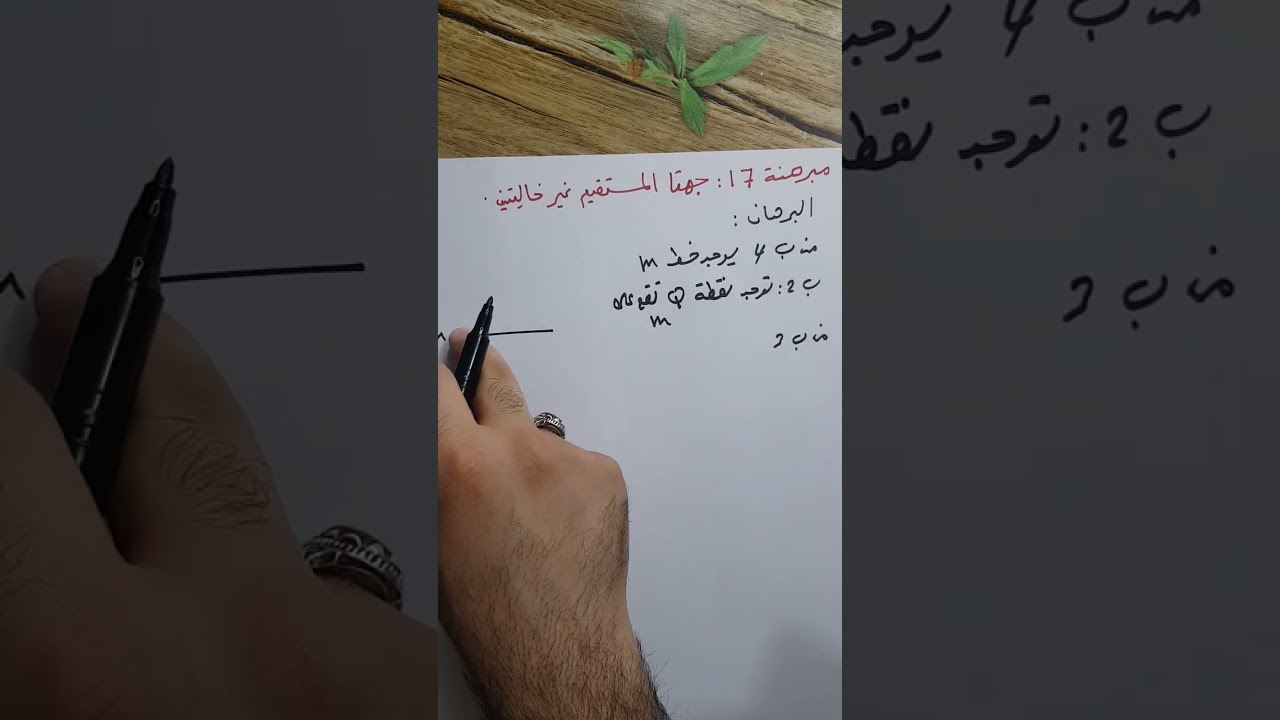 مبرهنة 17: جهتا المستقيم غير خاليتين.
البرهان:
من ب 4 يوجد خط m
ب 2: توجد نقطة Q تقع على
m
من ب 3
m